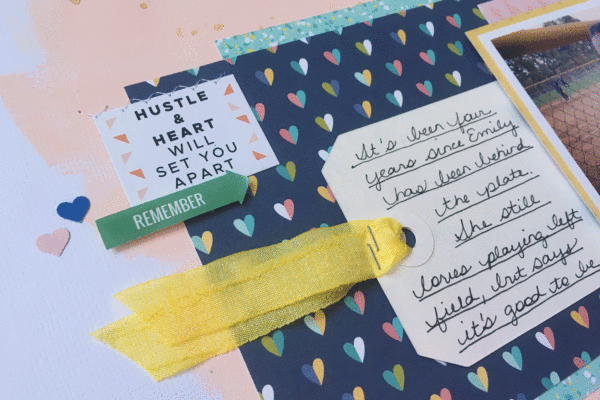 HUSTLE
&
HEART
WILL
SET YOU
APART
REMEMBER
It's been four
years since Emily
has been behind
the plate.
She still
loves playing left
field, but says
it's good to be